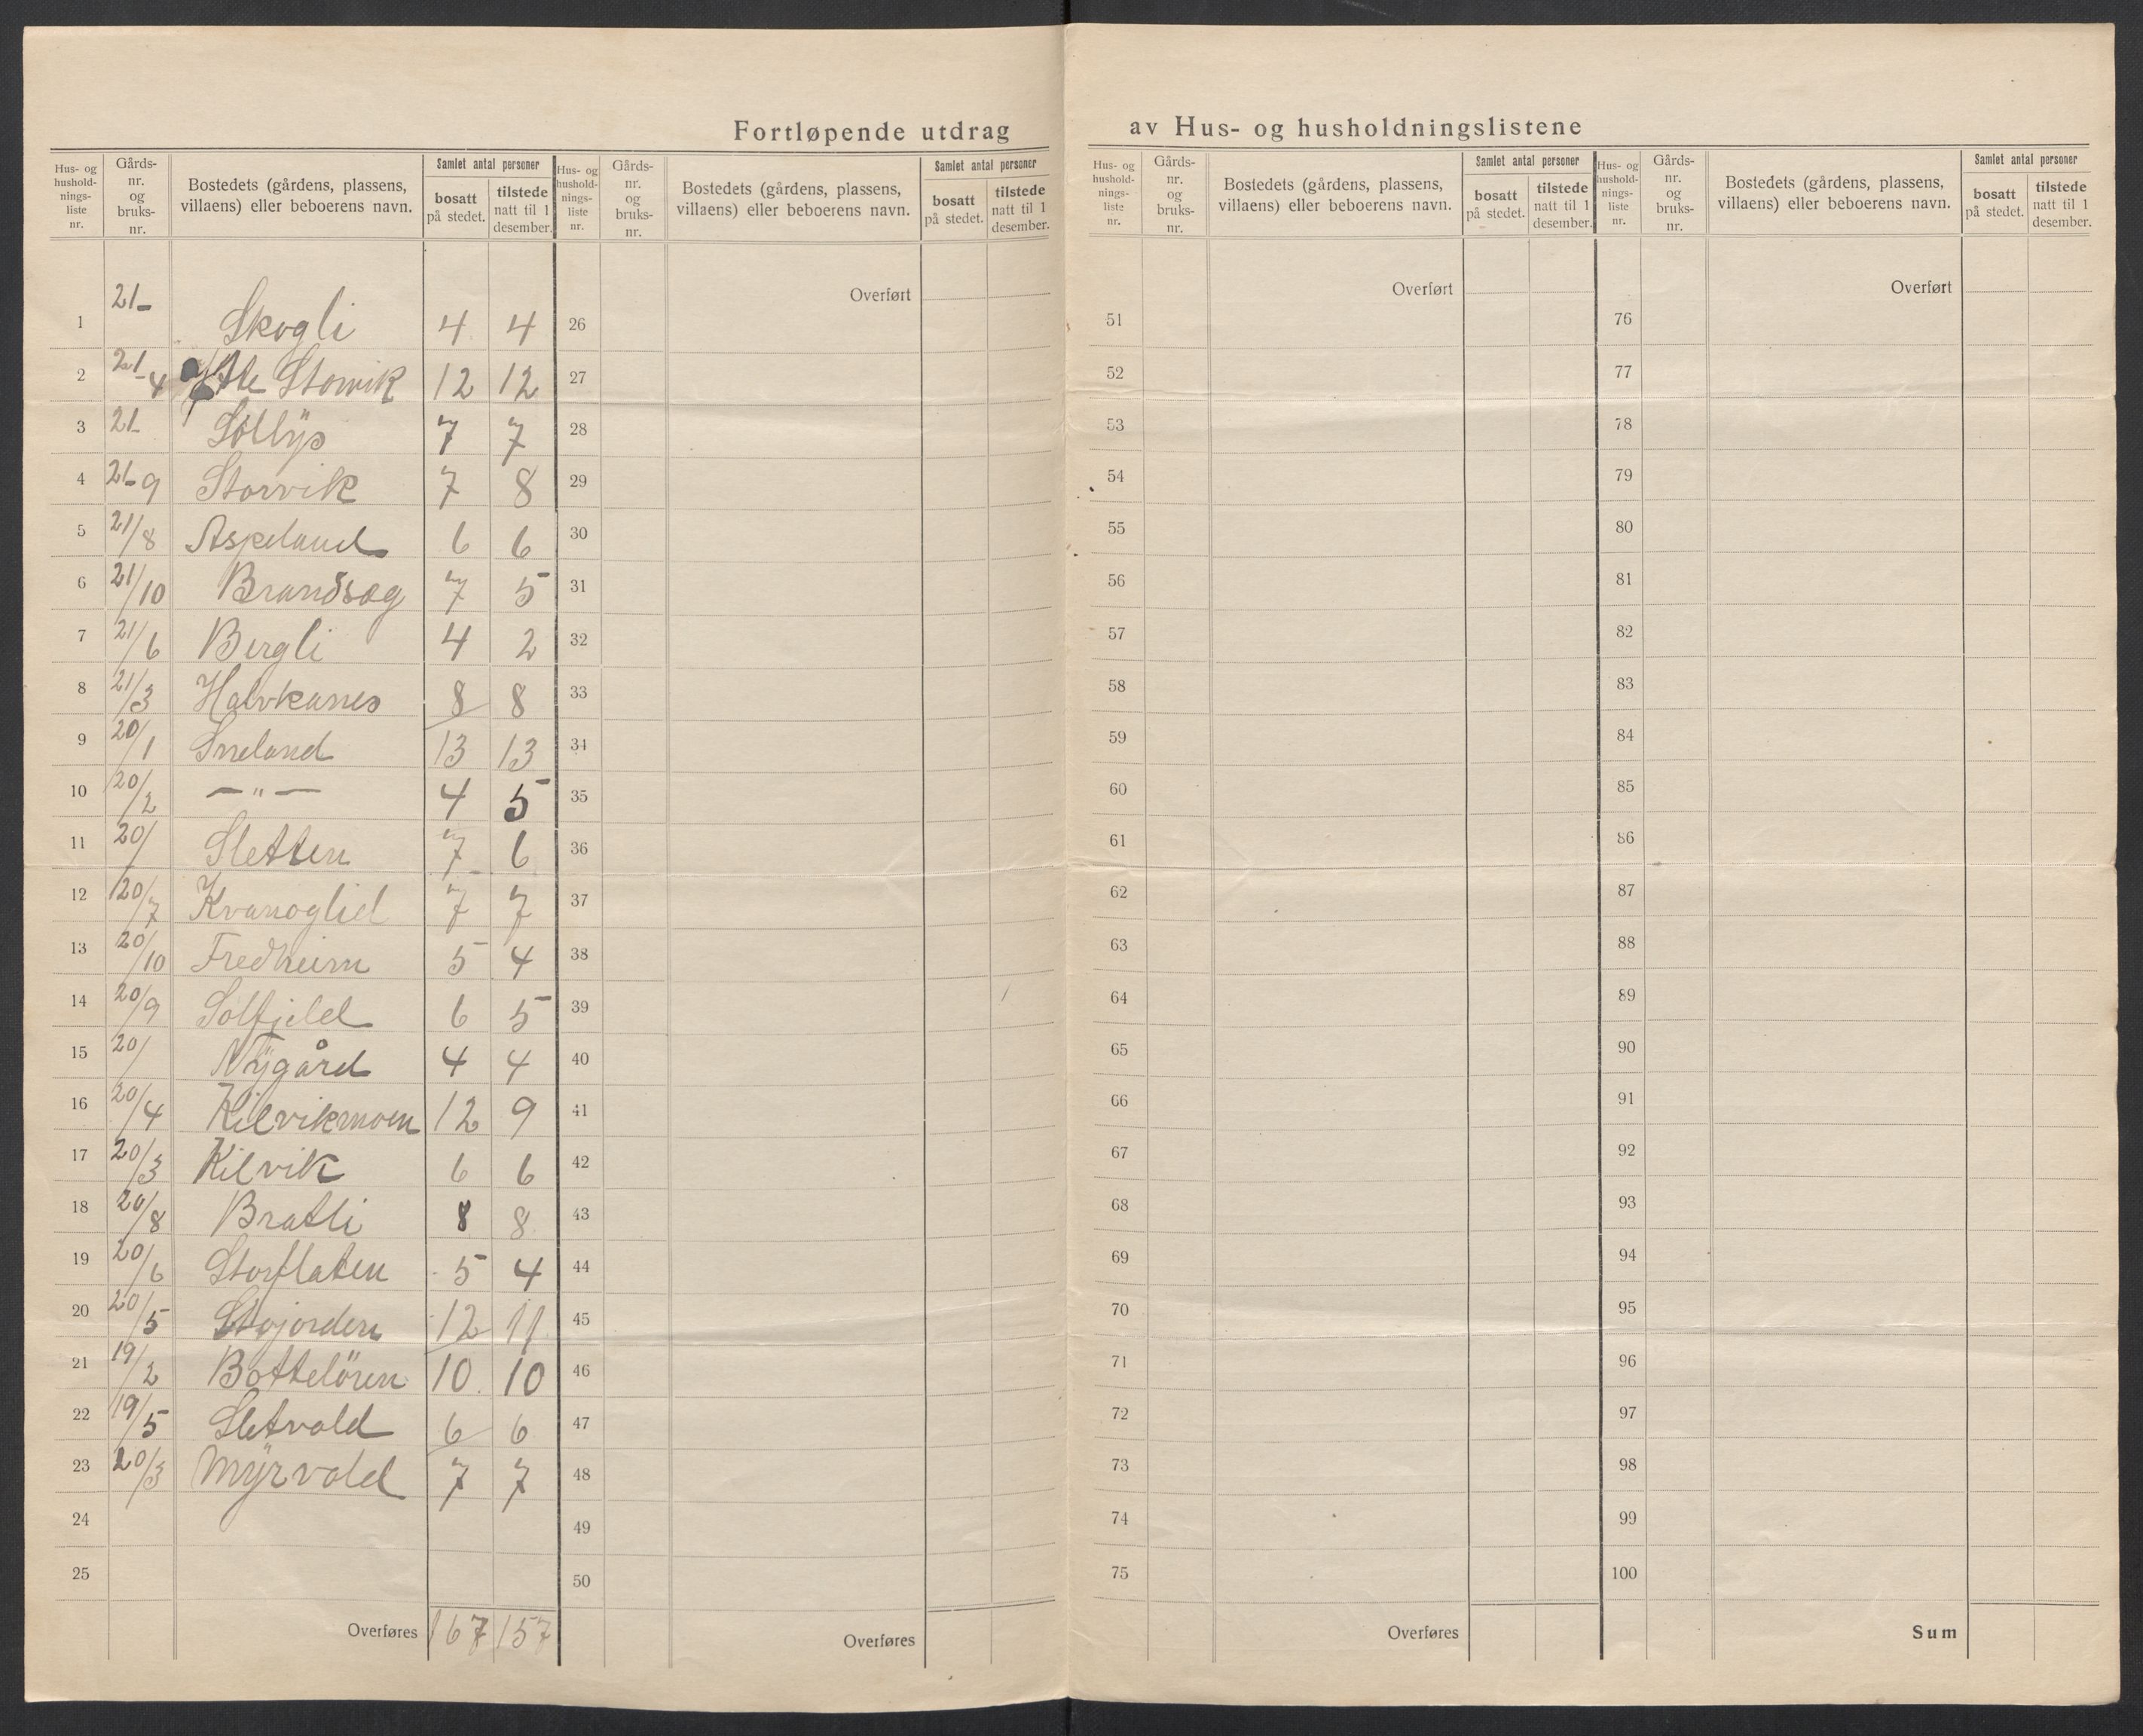 Fortløpende utdrag av Hus- og husholdningslistene
Hus- og husholdnings-liste nr. | Gårds-nr. og bruks-nr. | Bostedets (gårdens, plassens, villaens) eller beboerens navn. | Samlet antal personer | bosatt på stedet. | tilstede natt til 1 desember.
Hus- og husholdnings-liste nr. | Gårds-nr. og bruks-nr. | Bostedets (gårdens, plassens, villaens) eller beboerens navn. | Samlet antal personer | bosatt på stedet. | tilstede natt til 1 desember.
Hus- og husholdnings-liste nr. | Gårds-nr. og bruks-nr. | Bostedets (gårdens, plassens, villaens) eller beboerens navn. | Samlet antal personer | bosatt på stedet. | tilstede natt til 1 desember.
Hus- og husholdnings-liste nr. | Gårds-nr. og bruks-nr. | Bostedets (gårdens, plassens, villaens) eller beboerens navn. | Samlet antal personer | bosatt på stedet. | tilstede natt til 1 desember.
Overført Overført Overført
1 21- Skogli 4 4 26 51 76
2 21-4 Storvik 12 12 27 52 77
3 21- Sollÿs 7 7 28 53 78
4 21-9 Storvik 7 8 29 54 79
5 21/8 Aspeland 6 6 30 55 80
6 21/10 Brandsæg 7 5 31 56 81
7 21/6 Bergli 4 2 32 57 82
8 21/3 Halvkanes 8 8 33 58 83
9 20/1 Ineland 13 13 34 59 84
10 20/2 — " — 4 5 35 60 85
11 20/ Sletten 7 6 36 61 86
12 20/7 Kvanoglid 7 7 37 62 87
13 20/10 Fredheim 5 4 38 63 88
14 20/9 Solfjeld 6 5 39 64 89
15 20/ Nÿgård 4 4 40 65 90
16 20/4 Kilvikmoen 12 9 41 66 91
17 20/3 Kilvik 6 6 42 67 92
18 20/8 Bratli 8 8 43 68 93
19 20/6 Storflaten 5 4 44 69 94
20 20/5 Stojorden 12 11 45 70 95
21 19/2 Bottelören 10 10 46 71 96
22 19/5 Sletvold 6 6 47 72 97
23 20/3 Mÿrvold 7 7 48 73 98
24 49 74 99
25 50 75 100
Overføres 167 157 Overføres Overføres Sum